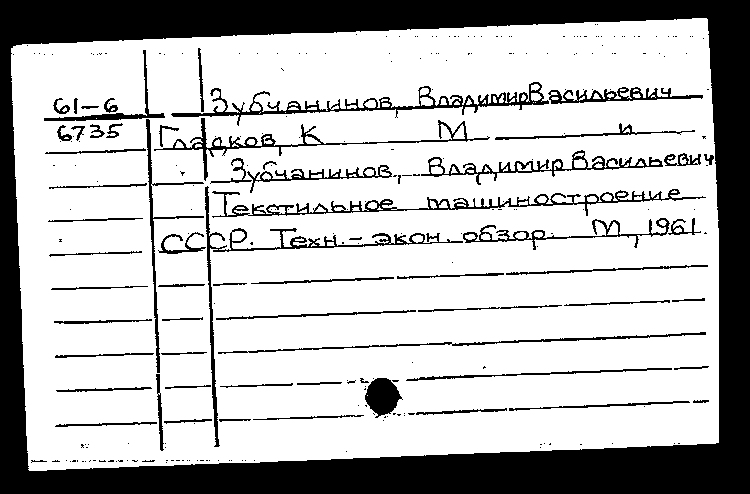 61-6 Зубчанинов, Владимир Васильевич
6735 Гладков, К М и
Зубчанинов, Владимир Васильевич
Текстильное машиностроение
СССР. Техн.-экон. обзор. М, 1961.